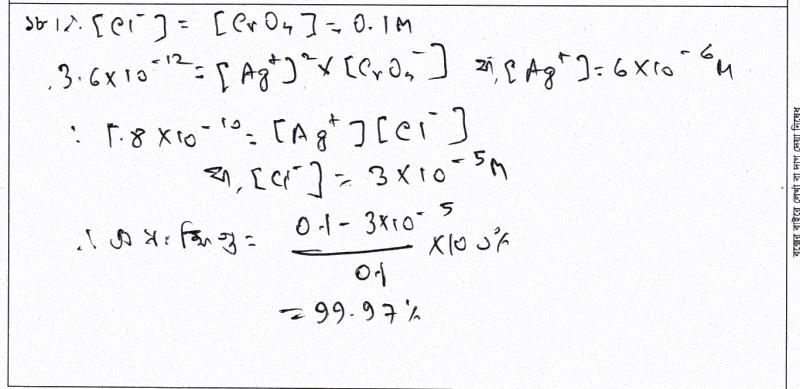 ১৮।১. [Cl⁻] = [CrO₄] = 0.1M
3.6×10⁻¹² = [Ag⁺]² × [CrO₄⁻] বা, [Ag⁺] = 6×10⁻⁶ M
∴ 1.8×10⁻¹⁰ = [Ag⁺][Cl⁻]
বা, [Cl⁻] = 3×10⁻⁵ M
∴ = (0.1 - 3×10⁻⁵)/0.1 ×100%
= 99.97%
বক্সের বাইরে লেখা বা দাগ দেয়া নিষেধ